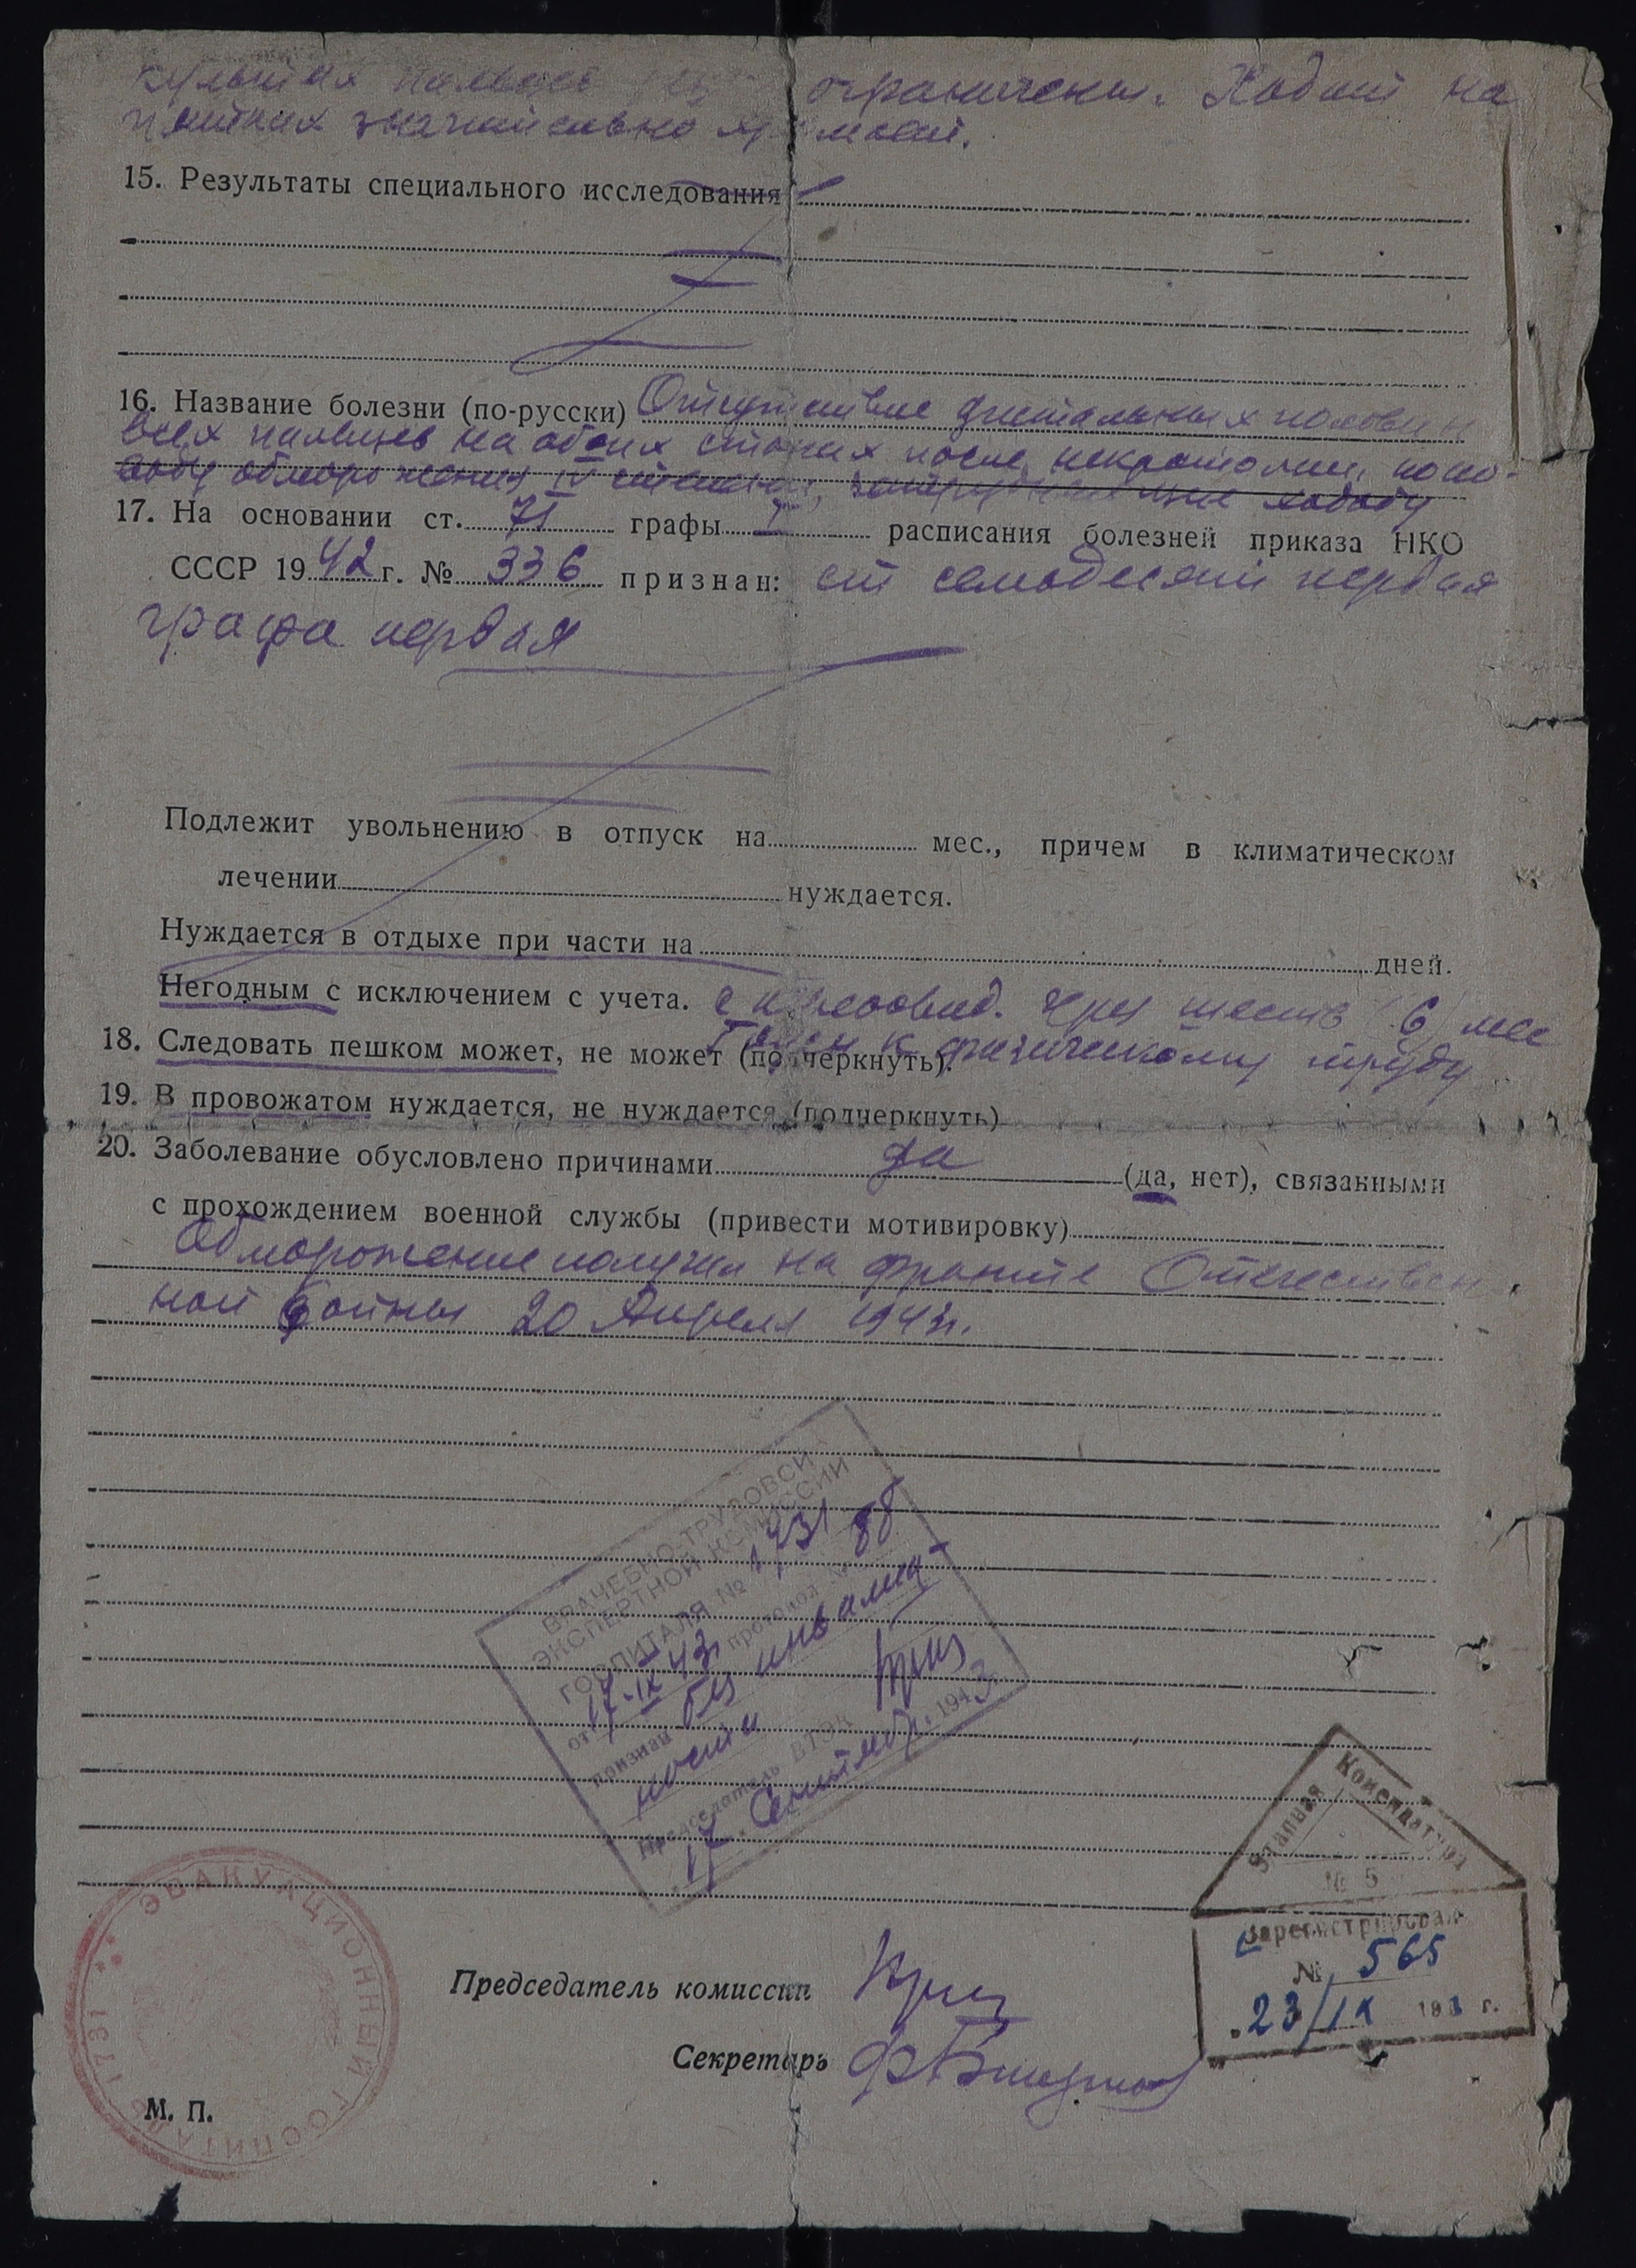 культях пальцев ограничены. Ходит на
пятках значительно хромает.
15. Результаты специального исследования
16. Название болезни (по-русски) Отсутствие дистальных половин
всех пальцев на обеих стопах после некротомии, по по-
воду обморожения IV степени, затрудняющие ходьбу
17. На основании ст. 71 графы I расписания болезней приказа НКО
СССР 1942 г. № 336 признан: ст семьдесят первая
графа первая
Подлежит увольнению в отпуск на мес., причем в климатическом
лечении нуждается.
Нуждается в отдыхе при части на дней.
Негодным с исключением с учета. с переосвид. через шесть (6) мес
Годен к физическому труду
18. Следовать пешком может, не может (подчеркнуть).
19. В провожатом нуждается, не нуждается (подчеркнуть)
20. Заболевание обусловлено причинами да (да, нет), связанными
с прохождением военной службы (привести мотивировку)
Обморожение получил на фронте Отечествен
ной войны 20 Апреля 1943г.
ВРАЧЕБНО-ТРУДОВОЙ
ЭКСПЕРТНОЙ КОМИССИИ
ГОСПИТАЛЯ № 1731
от 17-IX 43 протокол № 88
признан без инвалид
ности
Председатель ВТЭК
17 Сентябр. 1943
Этапная Комендатура
№ 5
Зарегистрирован
№ 565
23/IX 1943 г.
ЭВАКУАЦИОННЫЙ ГОСПИТАЛЬ № 1731
Председатель комиссии
Секретарь
М. П.